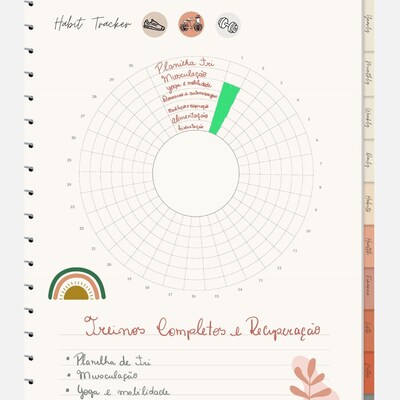 Habit Tracker
Planilha Tri
Musculação
yoga e mobilidade
alimentação
hidratação
1
2
3
4
5
6
7
8
9
10
11
12
13
14
15
16
17
18
19
20
21
22
23
24
25
26
27
28
29
30
Yearly
Monthly
Weekly
Daily
Habits
Health
Finance
Notes
Treinos Completos e Recuperação
• Planilha de Tri
• Musculação
• Yoga e mobilidade